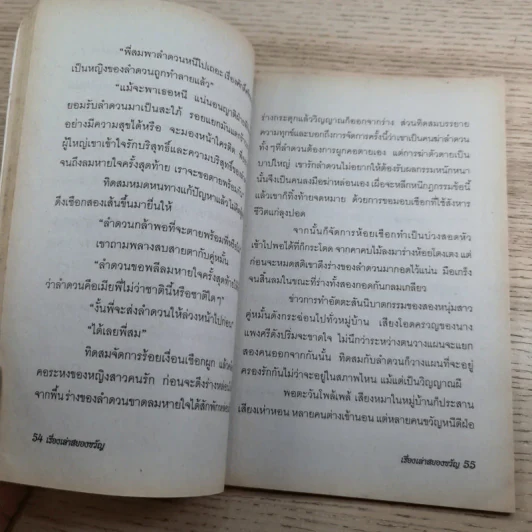 "พี่สมพาลำดวนหนีไปเถอะ เรื่อง
เป็นหญิงของลำดวนถูกทำลายแล้ว"
"แม้จะพาเธอหนี แน่นอนญาติ
ยอมรับลำดวนมาเป็นสะใภ้ รอยแยกมัน
อย่างมีความสุขได้หรือ จะมองหน้าใครติด
ผู้ใหญ่เขาเข้าใจรักบริสุทธิ์และความบริสุทธิ์ของ
จนถึงลมหายใจครั้งสุดท้าย เราจะขอตายพร้อม
ทิดสมหมดหนทางแก้ปัญหาแล้ว
ดึงเชือกสองเส้นขึ้นมายื่นให้
"ลำดวนกล้าพอที่จะตายพร้อม
เขาถามพลางสบสายตากับคู่หมั้น
"ลำดวนขอพลีลมหายใจครั้งสุดท้าย
ว่าลำดวนคือเมียพี่ไม่ว่าชาตินี้หรือชาติใดๆ"
"งั้นพี่จะส่งลำดวนให้ล่วงหน้าไปก่อน
"ได้เลยพี่สม"
ทิดสมจัดการร้อยเงื่อนเชือกผูก แล้ว
คอระหงของหญิงสาวคนรัก ก่อนจะดึงร่าง
จากพื้น ร่างของลำดวนขาดลมหายใจได้สักพัก
54 เรื่องเล่าสยองขวัญ
ร่างกระตุกแล้ววิญญาณก็ออกจากร่าง ส่วนทิดสมบรรยาย
ความทุกข์และบอกถึงการจัดการครั้งนี้ว่าเขาเป็นคนฆ่าลำดวน
ทั้งๆ ที่ลำดวนต้องการผูกคอตายเอง แต่การฆ่าตัวตายเป็น
บาปใหญ่ เขารักลำดวนไม่อยากให้ต้องรับผลกรรมหนักหนา
นั้นจึงเป็นคนลงมือฆ่าหล่อนเอง เผื่อจะหลีกหนีกฎกรรมข้อนี้
แล้วเขาก็ทิ้งท้ายจดหมาย ด้วยการขอมอบเชือกที่ใช้สังหาร
ชีวิตแก่ลุงปอด
จากนั้นก็จัดการห้อยเชือกทำเป็นบ่วงสอดหัว
เข้าไปพอได้ที่ก็กระโดด จากคาคบไม้ลงมาร่างห้อยโตงเตง แต่
ก่อนที่จะหมดสติเขาดึงร่างของลำดวนมากอดไว้แน่น มือเกร็ง
จนสิ้นลมในขณะที่ร่างทั้งสองกอดกันกลมเกลียว
ข่าวการทำอัตตะสันนิบาตกรรมของสองหนุ่มสาว
คู่หมั้นดังกระฉ่อนไปทั่วหมู่บ้าน เสียงโอดครวญของนาง
แพงศรีดังปริ่มจะขาดใจ ไม่นึกว่าระหว่างดนวางแผนจะแยก
สองคนออกจากกันนั้น ทิดสมกับลำดวนก็วางแผนที่จะอยู่
ครองรักกันไม่ว่าจะอยู่ในสภาพไหน แม้แต่เป็นวิญญาณผี
พอตะวันโพล้เพล้ เสียงหมาในหมู่บ้านก็ประสาน
เสียงเห่าหอน หลายคนต่างเข้านอน แต่หลายคนขวัญหนีดีฝ่อ
เรื่องเล่าสยองขวัญ 55